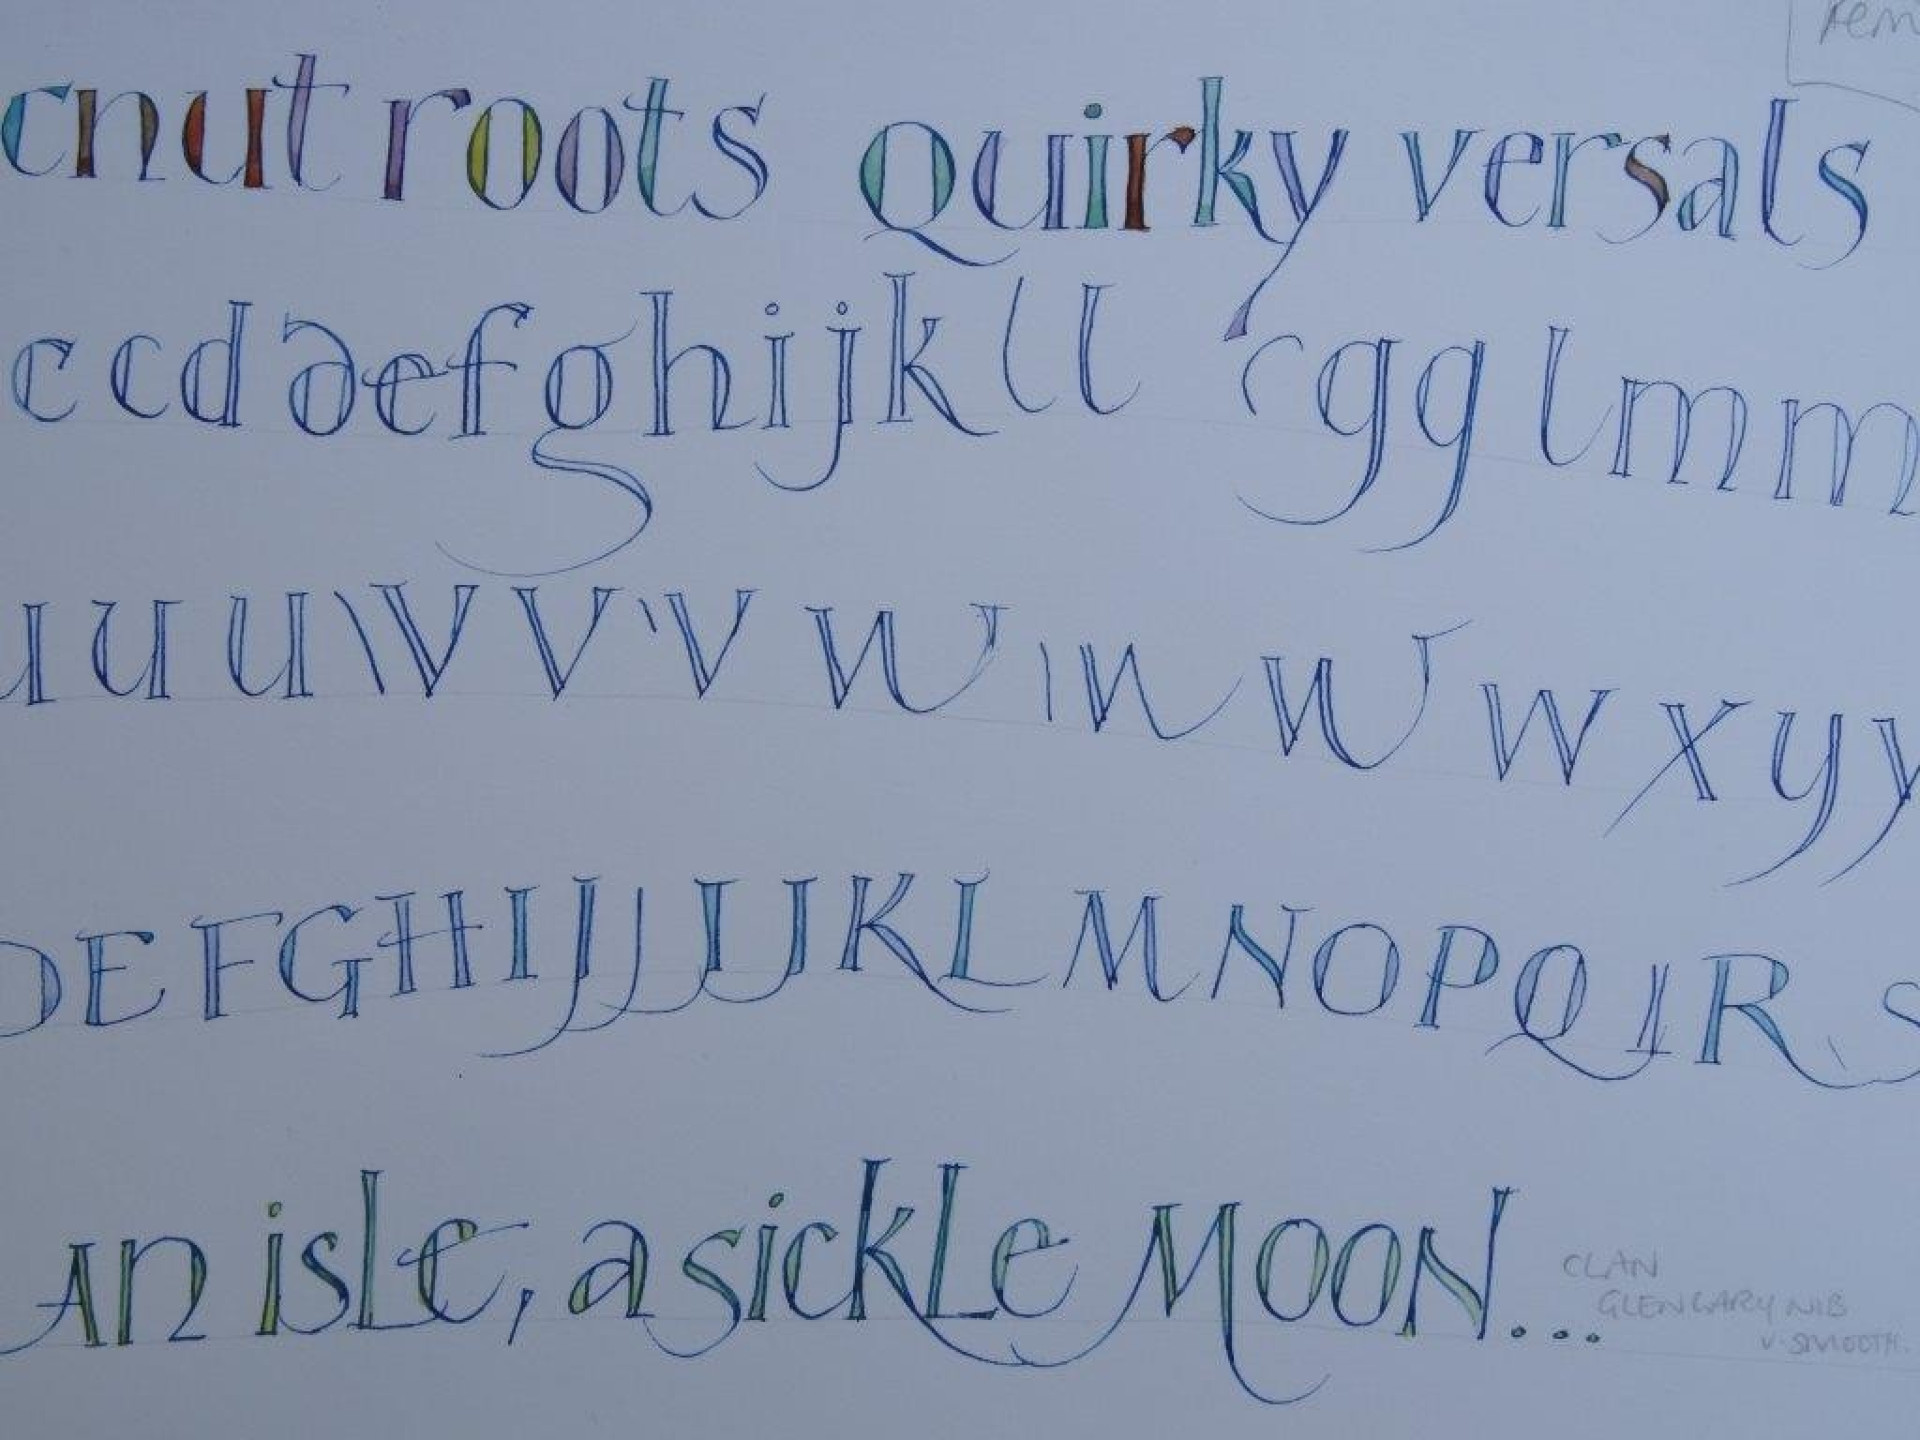 cnut roots Quirky versals
c c d d e f g h i j k l l c g g l m m
u u u \ V V \ V w ı w w w x y y
D E F G H I J J J J K L M N O P Q I R S
An isle, a sickle Moon...
CLAN
GLENGARY NIB
V. SMOOTH.